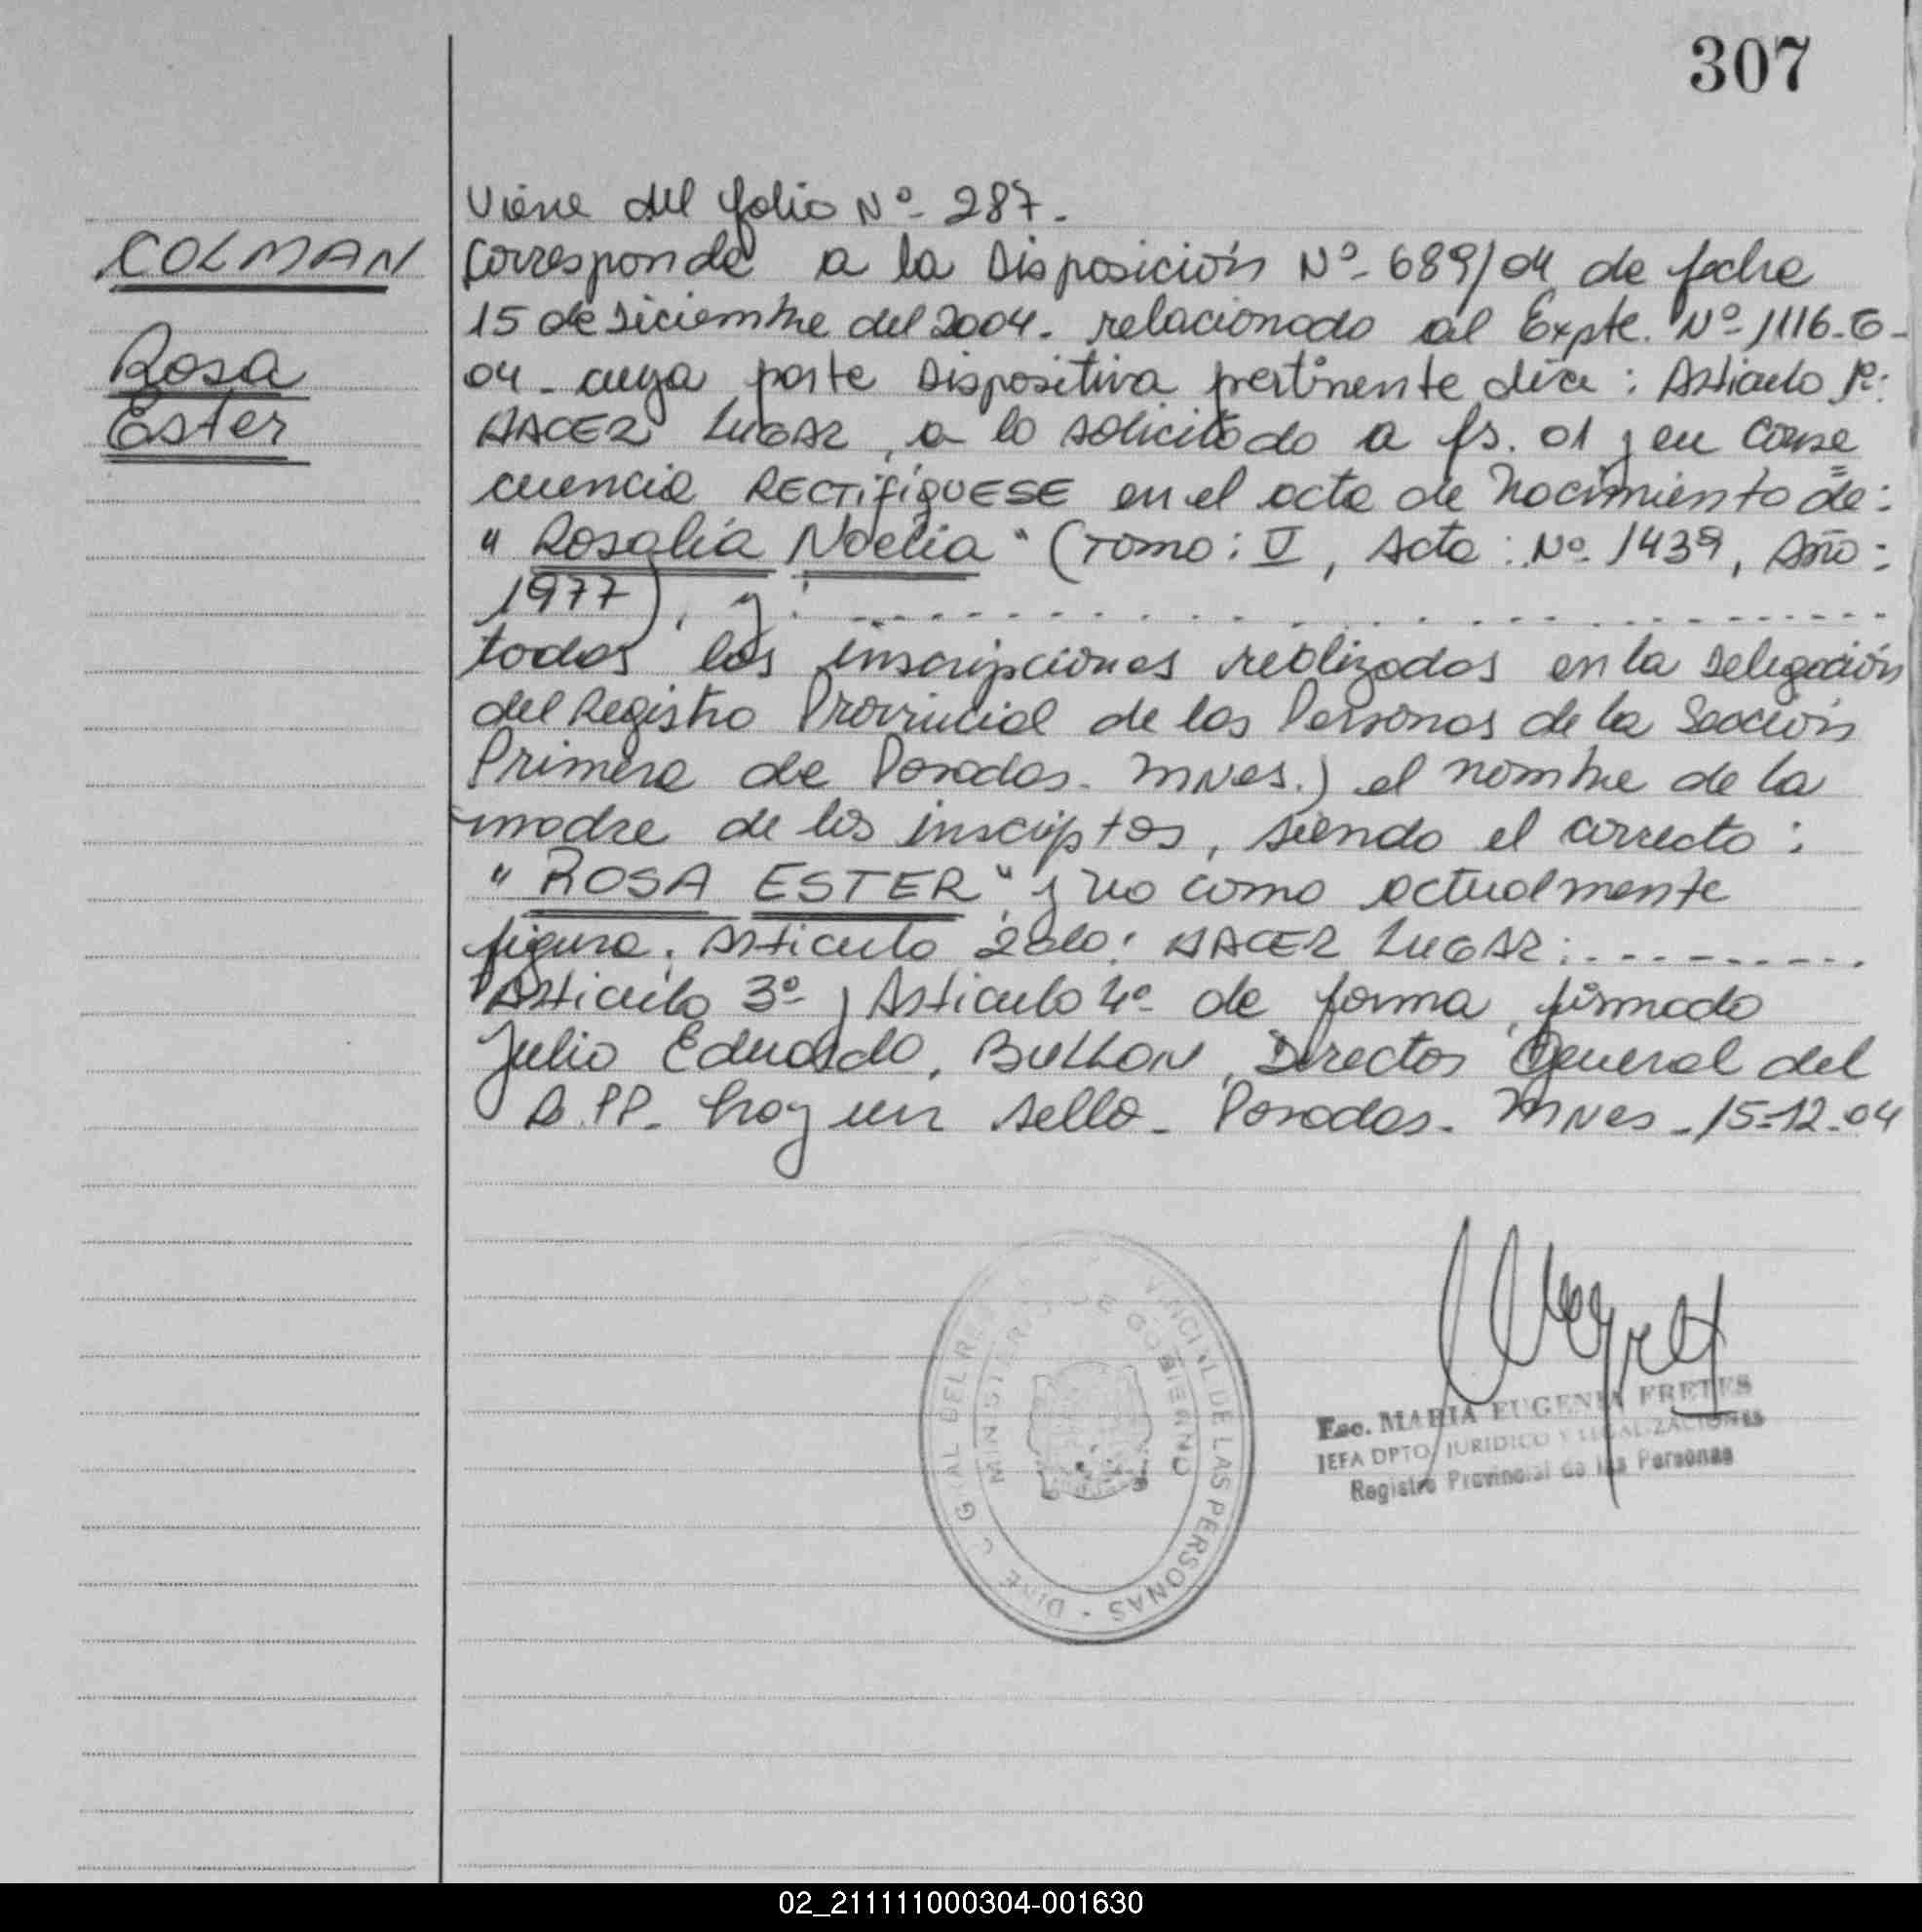 307
COLMAN
Rosa
Ester
Viene del folio Nº- 287.
Corresponde a la Disposición Nº- 689/04 de fecha
15 de Diciembre del 2004. relacionado al Expte. Nº- 1116-E-
04 - cuya parte Dispositiva pertinente dice : Articulo 1º:
HACER LUGAR, a lo solicitado a fs. 01 y en conse
cuencia RECTIFÍQUESE en el acta de Nacimiento de:
" Rosalia Noelia " (Tomo : V, Acta : Nº 1439, Año :
1977), y: ...........................
todas las inscripciones realizadas en la Delegación
del Registro Provincial de las Personas de la Sección
Primera de Posadas - Mnes.) el nombre de la
madre de los inscriptos, siendo el correcto :
" ROSA ESTER " y no como actualmente
figura. Articulo 2do: HACER LUGAR: ..........
Articulo 3º y Articulo 4º de forma, firmado
Julio Eduardo, BULLON, Director General del
R.P.P. hay un sello - Posadas - Mnes - 15-12-04
DIRECC GRAL DEL R VINCIAL DE LAS PERSONAS
MINISTERIO DE GOBIERNO
Esc. MARIA EUGENIA FRETES
JEFA DPTO. JURIDICO Y LEGALIZACIONES
Registro Provincial de las Personas
02_211111000304-001630